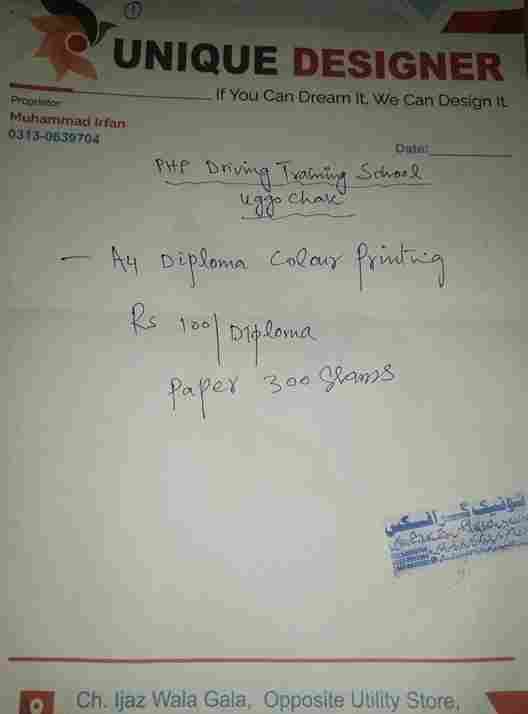 ①
UNIQUE DESIGNER
If You Can Dream It, We Can Design It
Proprietor
Muhammad Irfan
0313-0639704
Date:
PHP Driving Training School
Uggo Chak
— A4 Diploma Colour Printing
Rs 100/Diploma
Paper 300 Grams
یونیک گرافکس
Ch. Ijaz Wala Gala, Opposite Utility Store,